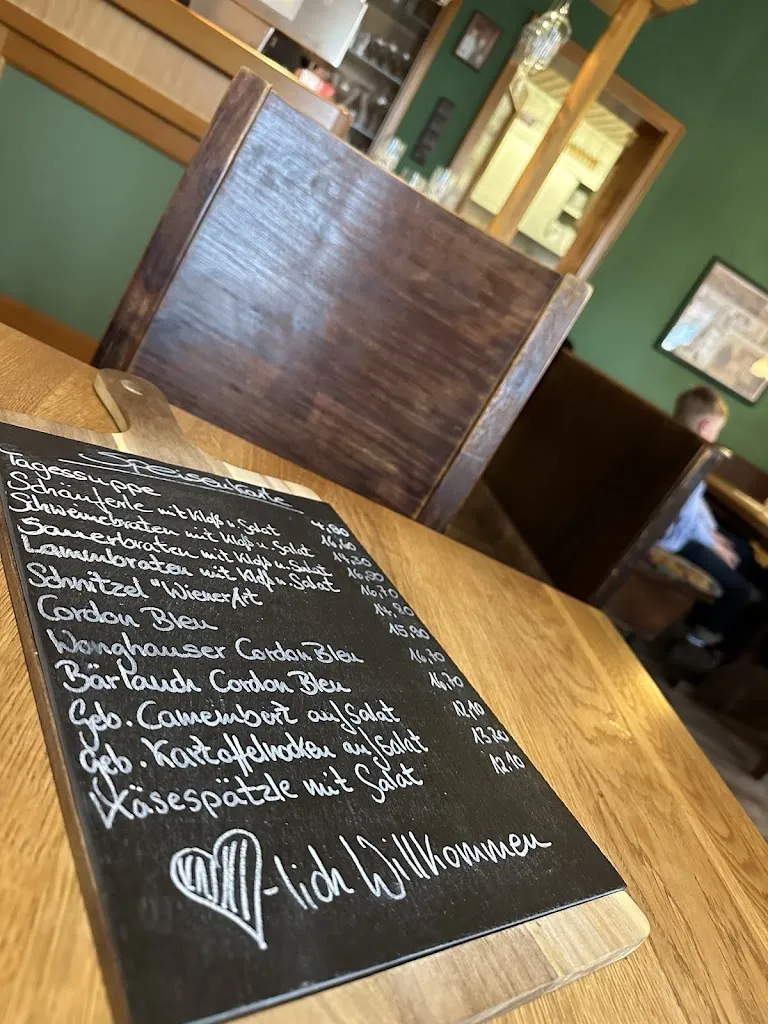 Speisenkarte
Tagessuppe 4,80
Schäuferle mit Kloß u. Salat
Schweinebraten mit Kloß u. Salat
Sauerbraten mit Kloß u. Salat
Lammbraten mit Kloß u. Salat 16,70
Schnitzel "Wiener Art 14,20
Cordon Bleu 15,80
Cordon Bleu 16,70
Bärlauch Cordon Bleu 16,70
Geb. Camembert auf Salat 12,10
Geb. Kartoffelrocken auf Salat 13,20
Käsespätzle mit Salat 12,10
-lich Willkommen